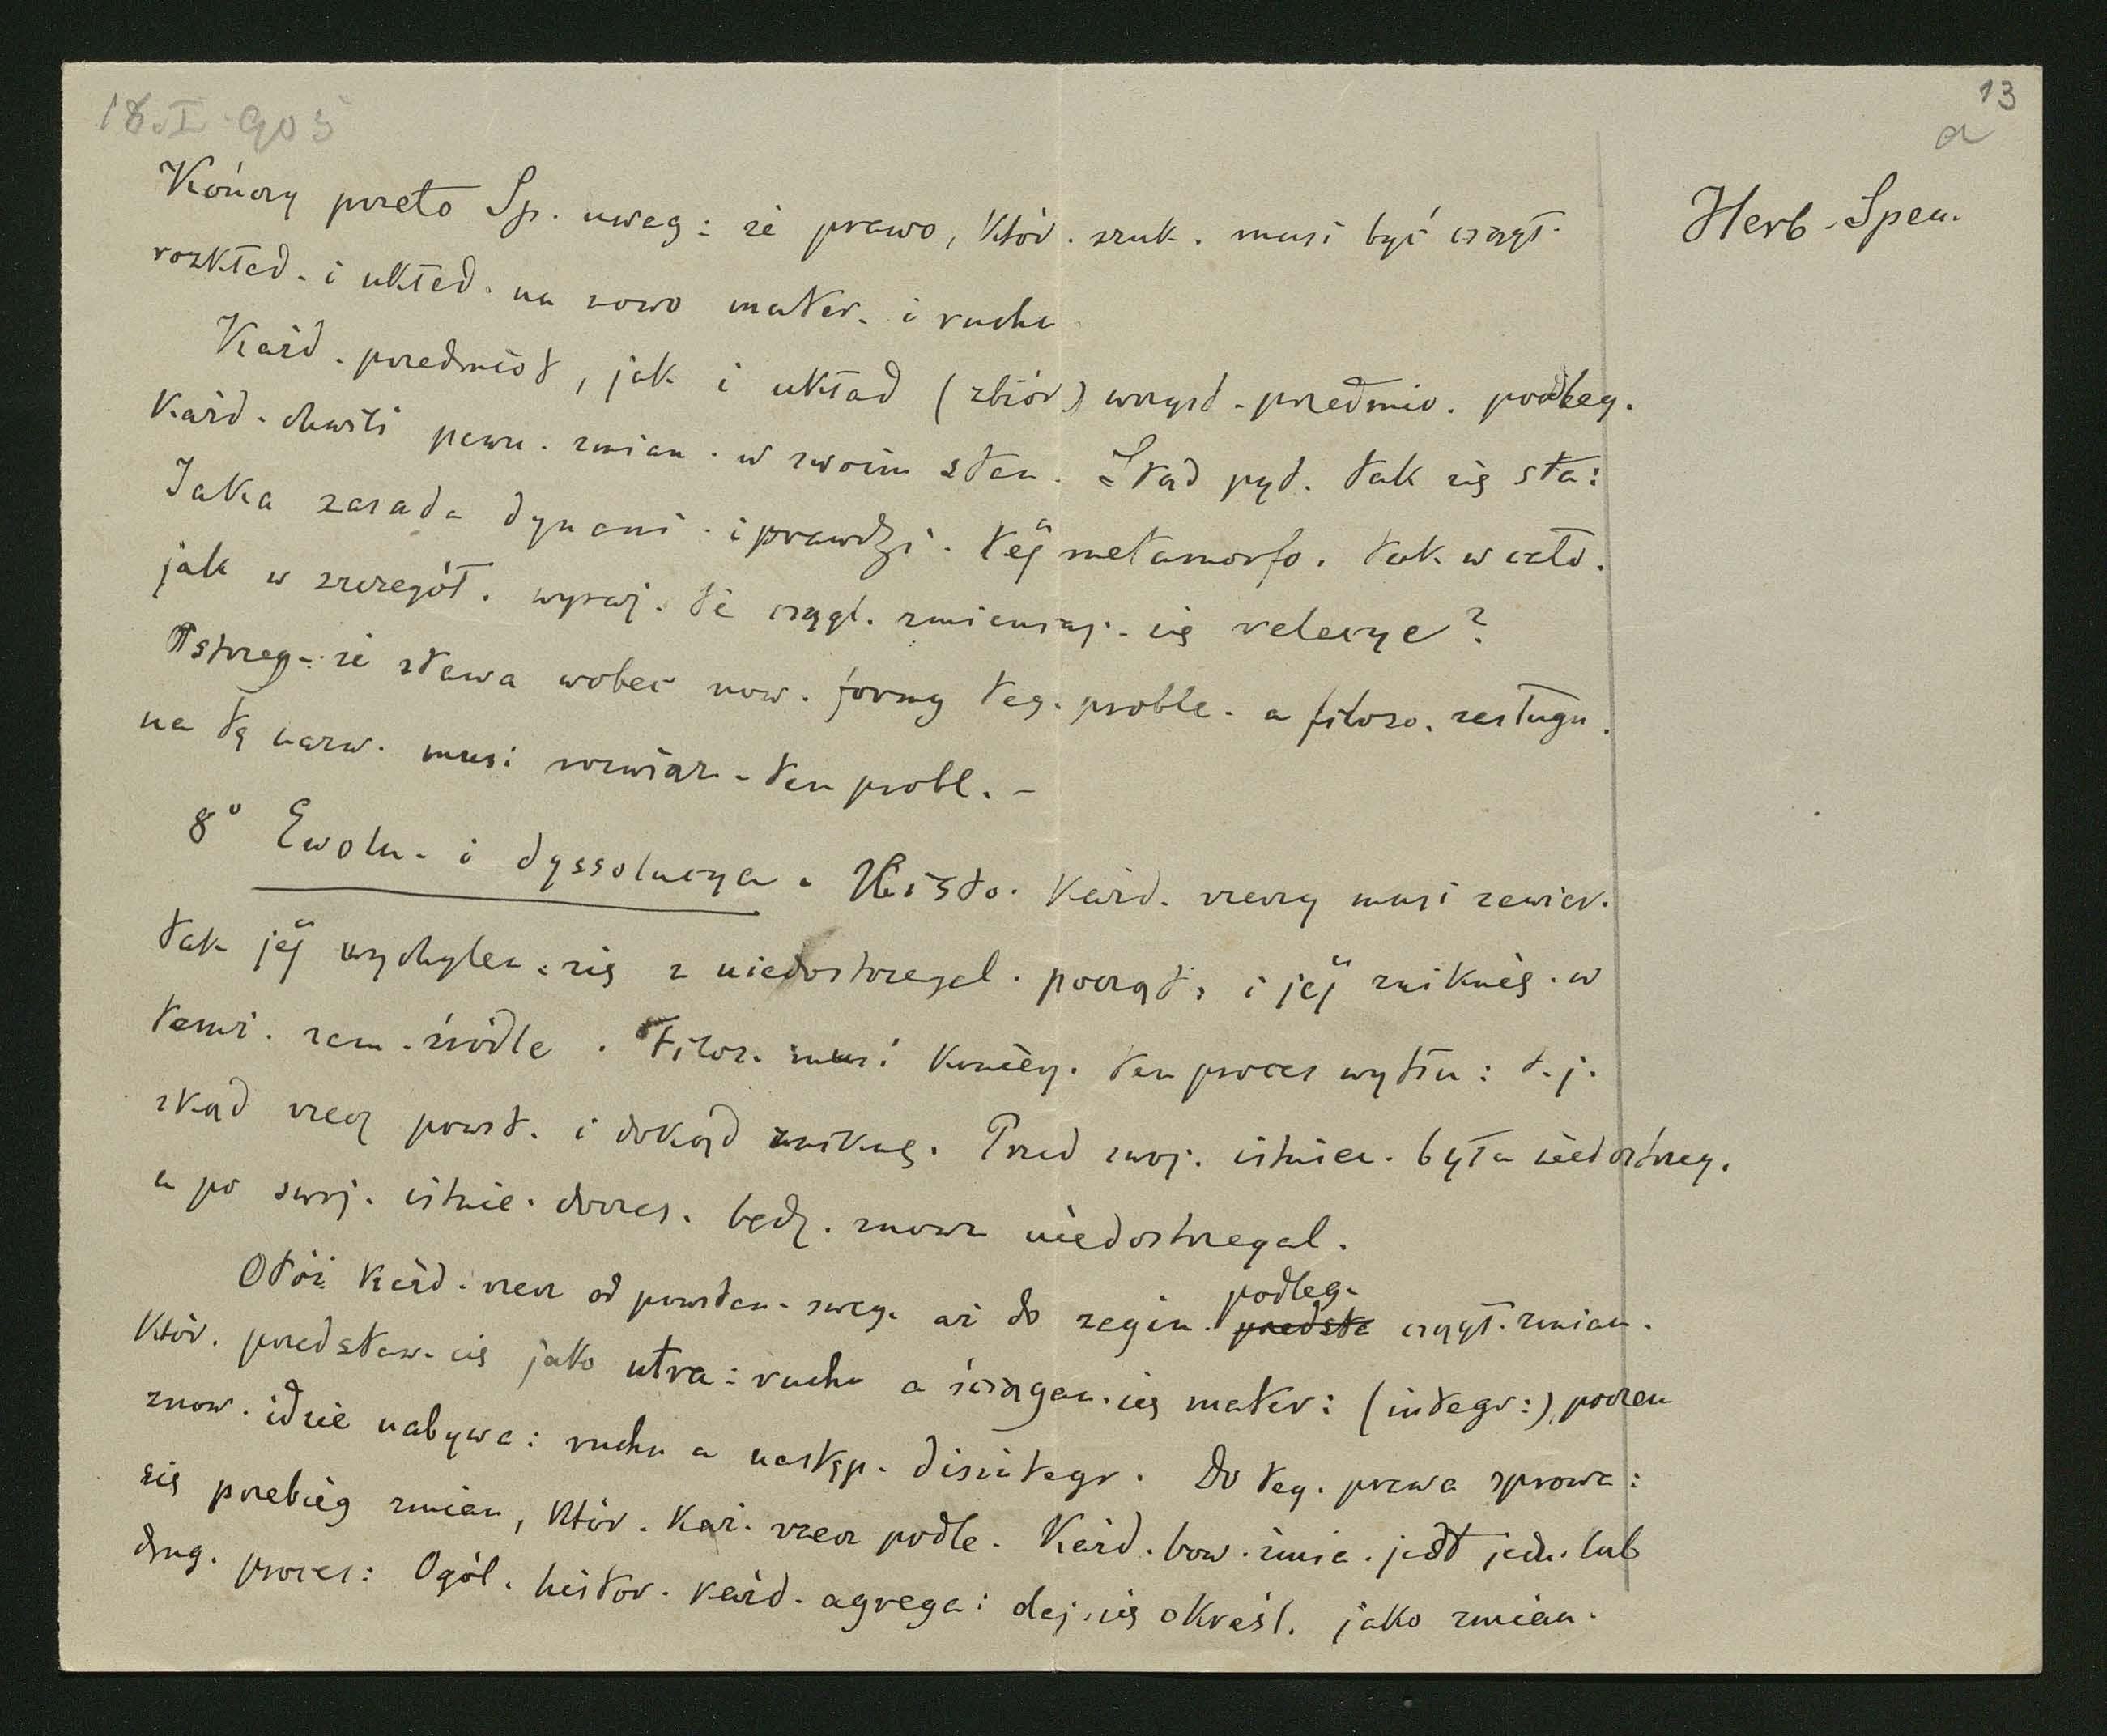 18.I.905
13
a
Herb. Spen.
Kończy przeto Sp. uwag: że prawo, któr. szuk. musi być ciągł.
rozkład. i układ. na nowo mater. i ruchu
Każd. przedmiot, jak i układ (zbiór) wszyst. przedmio. podleg.
każd. chwili pewn. zmian. w swoim stan. Stąd pyt. tak się sta:
Jaka zasada dynami. i prawdzi. téj metamorfo. tak w cało.
jak w szczegół. wyraż. te ciągł. zmieniaj. się relacye?
Ostrzeg. że stawa wobec now. formy teg. proble. a filozo. zasługu.
na tę nazw. musi rozwiąz. ten probl. –
8° Ewolu. i dyssolucya. Histo. każd. rzeczy musi zawier.
tak jéj wychylen. się z niedostrzegal. począt. i jéj zniknię. w
temż. sam. źródle. Filoz. musi koniecz. ten proces wytłu: t.j.
skąd rzecz powst. i dokąd znikną. Przed swoj. istnien. była niedostrzeg.
a po swoj. istnie. doczes. będz. znowu niedostrzegal.
Otóż każd. rzecz od powstan. sweg. aż do zagin. podleg. przedsta ciągł. zmian.
któr. przedstaw. się jako utra: ruchu a ściągan. się mater: (integr:), poczem
znow. idzie nabywa: ruchu a następ. disintegr. Do teg. prawa sprowa:
się przebieg zmian, któr. każ. rzecz podle. Każd. bow. zmia. jest jedn. lub
drug. proces: Ogól. histor. każd. agrega: daj. się określ. jako zmian.